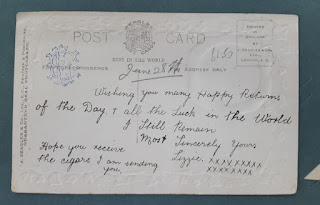 POST CARD
BEST IN THE WORLD
FOR CORRESPONDENCE
ADDRESS ONLY
June 28th
Wishing you many Happy Returns
of the Day & all the Luck in the World
I Still Remain
Most Sincerely Yours
Lizzie. xxxxxxxxx
xxxxxxxx
Hope you receive
the cigars I am sending
you,